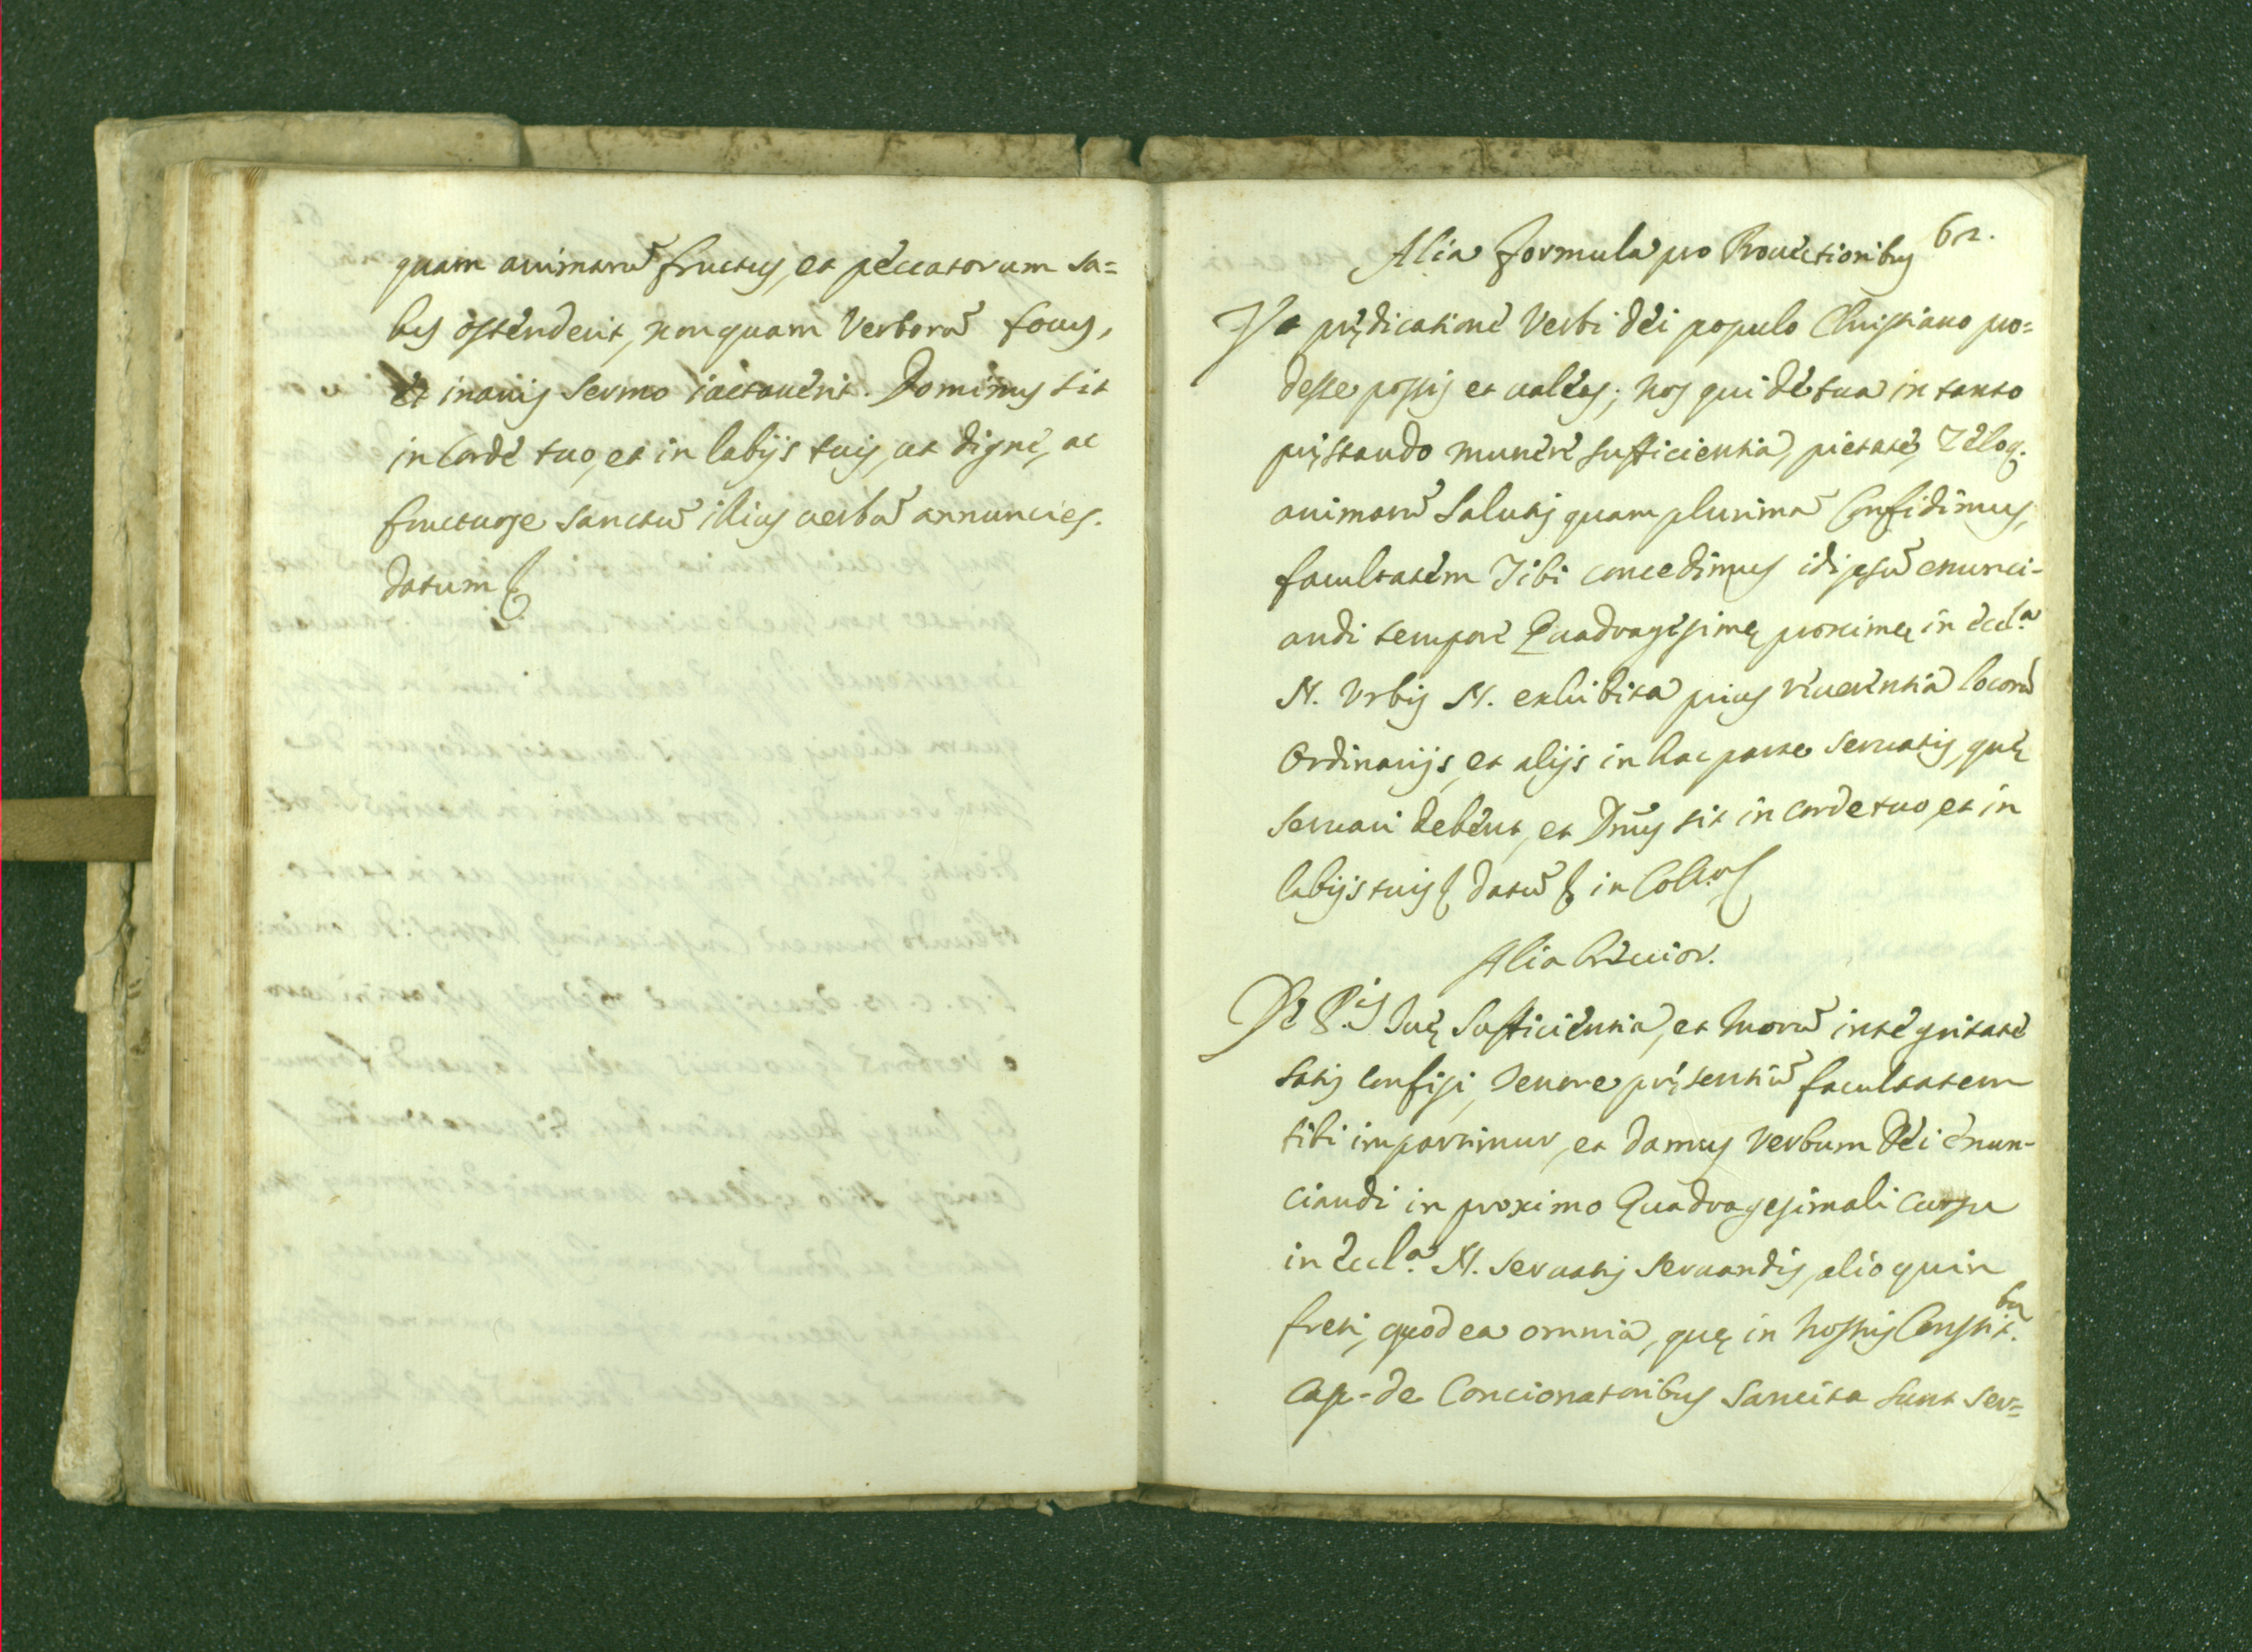 quam animarũ fructus, et peccatorum sa=
lus ostenderit, non quam Verborũ focus,
et inanis sermo iactauerit. Dominus sit
in Corde tuo, et in labijs tuis, ut digne, ac
fructuose sanctũ illius uerbũ annuncies.
Datum &
62.
Alia formula pro Prouectioribus
Ut prędicatione Verbi Dei populo Christiano pro=
desse possis et ualeas; Nos qui de tua in tanto
pręstando munere sufficientia, pietate, Zeloq.
animarũ Salutis quam plurimũ Confidimus,
facultatem Tibi concedimus idipsũ enunci-
andi tempore Quadragesimę proximę in Eccl.a
N. Vrbis N. exhibita prius reuerentia locorũ
Ordinarijs, et alijs in hac parte seruatis, quę
seruari debent, et Dñus sit in corde tuo, et in
labijs tuis & datũ & in Coll.o &
Alia breuior.
De P.is Tuę Sufficientia, et Morũ integritate
satis confisi, Tenore pręsentiũ facultatem
tibi impartimur, et damus Verbum Dei enun-
ciandi in proximo Quadragesimali cursu
in Eccl.a N. seruatis seruandis, alioquin
freti, quod ea omnia, quę in nostris Constit.bus
Cap. de Concionatoribus sancita sunt ser=